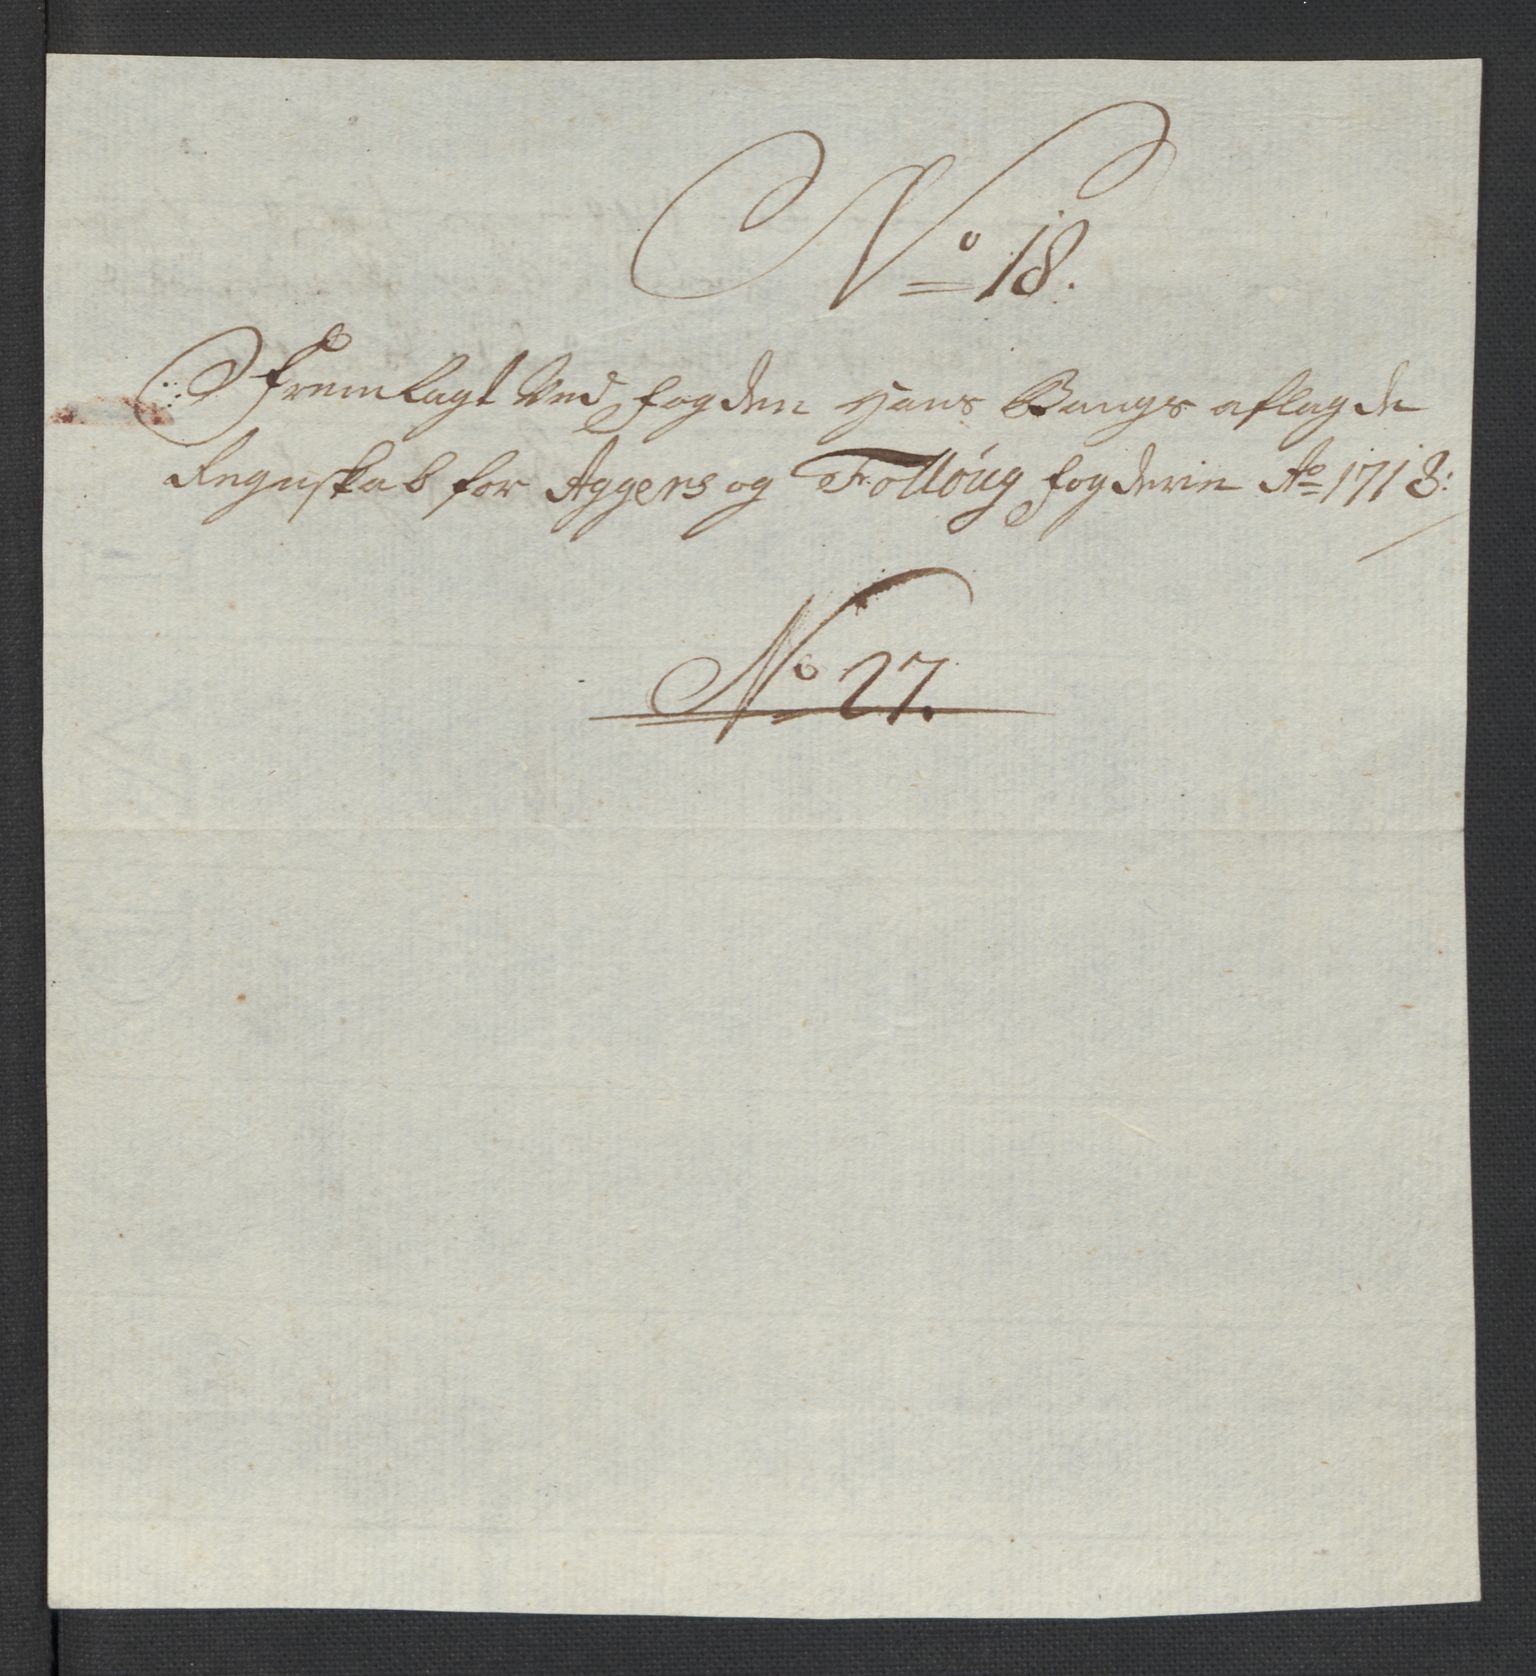 No 18.
Fremlagt Ved fogden Hans Bangs aflagde
Regnskab for Aggers og Follóug fogderie Ao 1718:
No 27.